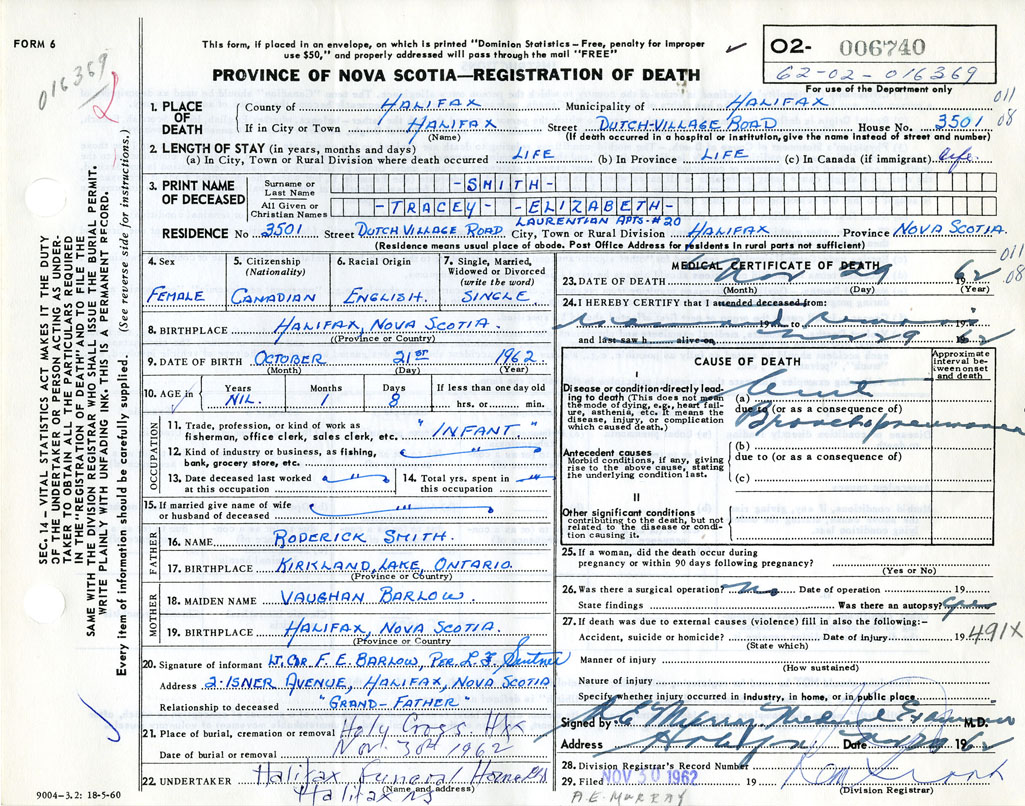 FORM 6
016369
2
This form, if placed in an envelope, on which is printed "Dominion Statistics – Free, penalty for improper
use $50," and properly addressed will pass through the mail "FREE"
✓
02- 006740
62-02-016369
For use of the Department only
PROVINCE OF NOVA SCOTIA—REGISTRATION OF DEATH
011
08
SEC. 14 – VITAL STATISTICS ACT MAKES IT THE DUTY
OF THE UNDERTAKER OR PERSON ACTING AS UNDER-
TAKER TO OBTAIN ALL THE PARTICULARS REQUIRED
IN THE "REGISTRATION OF DEATH" AND TO FILE THE
SAME WITH THE DIVISION REGISTRAR WHO SHALL ISSUE THE BURIAL PERMIT.
WRITE PLAINLY WITH UNFADING INK. THIS IS A PERMANENT RECORD.
Every item of information should be carefully supplied. (See reverse side for instructions.)
1. PLACE OF DEATH
County of HALIFAX Municipality of HALIFAX
If in City or Town HALIFAX Street DUTCH-VILLAGE ROAD House No. 3501
(Name) (If death occurred in a hospital or institution, give the name instead of street and number)
2. LENGTH OF STAY (in years, months and days)
(a) In City, Town or Rural Division where death occurred LIFE (b) In Province LIFE (c) In Canada (if immigrant) Life.
3. PRINT NAME OF DECEASED
Surname or Last Name -SMITH-
All Given or Christian Names -TRACEY- -ELIZABETH-
LAURENTIAN APTS-#20
RESIDENCE No 3501 Street DUTCH VILLAGE ROAD City, Town or Rural Division HALIFAX Province NOVA SCOTIA.
(Residence means usual place of abode. Post Office Address for residents in rural parts not sufficient)
011
08
4. Sex
FEMALE
5. Citizenship
(Nationality)
CANADIAN
6. Racial Origin
ENGLISH.
7. Single, Married,
Widowed or Divorced
(write the word)
SINGLE
8. BIRTHPLACE HALIFAX, NOVA SCOTIA.
((Province or Country)
9. DATE OF BIRTH OCTOBER 21ST 1962
(Month) (Day) (Year)
10. AGE in
Years NIL.
Months 1
Days 8
If less than one day old
hrs. or min.
OCCUPATION
11. Trade, profession, or kind of work as
fisherman, office clerk, sales clerk, etc. "INFANT."
12. Kind of industry or business, as fishing,
bank, grocery store, etc. "
13. Date deceased last worked
at this occupation "
14. Total yrs. spent in
this occupation "
15. If married give name of wife
or husband of deceased "
FATHER
16. NAME RODERICK SMITH.
17. BIRTHPLACE KIRKLAND, LAKE, ONTARIO.
(Province or Country)
MOTHER
18. MAIDEN NAME VAUGHAN BARLOW.
19. BIRTHPLACE HALIFAX, NOVA SCOTIA.
(Province or Country
20. Signature of informant LT. CDR F. E. BARLOW, PER L. F.
Address 2-ISNER AVENUE, HALIFAX, NOVA SCOTIA
Relationship to deceased "GRAND-FATHER"
21. Place of burial, cremation or removal Holy Cross Hfx
Date of burial or removal Nov. 30th 1962
22. UNDERTAKER Halifax Funeral Home Ltd
Halifax NS
(Name and address)
9004-3.2: 18-5-60
MEDICAL CERTIFICATE OF DEATH
23. DATE OF DEATH Nov 29 1962
(Month) (Day) (Year)
24. I HEREBY CERTIFY that I attended deceased from:
19 to 19
and last saw h alive on Nov 29 1962
CAUSE OF DEATH
Approximate interval between onset and death
I
Disease or condition directly lead-
ing to death (This does not mean
the mode of dying, e.g., heart fail-
ure, asthenia, etc. It means the
disease, injury, or complication
which caused death.)
(a) Acute
due to (or as a consequence of)
Bronchopneumonia
(b)
due to (or as a consequence of)
(c)
Antecedent causes
Morbid conditions, if any, giving
rise to the above cause, stating
the underlying condition last.
II
Other significant conditions
contributing to the death, but not
related to the disease or condi-
tion causing it.
25. If a woman, did the death occur during
pregnancy or within 90 days following pregnancy?
(Yes or No)
26. Was there a surgical operation? No Date of operation 19
State findings Was there an autopsy? Yes
27. If death was due to external causes (violence) fill in also the following:–
491X
Accident, suicide or homicide? Date of injury 19
(State which)
Manner of injury
(How sustained)
Nature of injury
Specify whether injury occurred in industry, in home, or in public place
Signed by A E Murray Medical Examiner M.D.
Address Halifax Date Nov 29 1962
28. Division Registrar's Record Number
29. Filed NOV 30 1962 19
(Division Registrar)
A.E. MURRAY